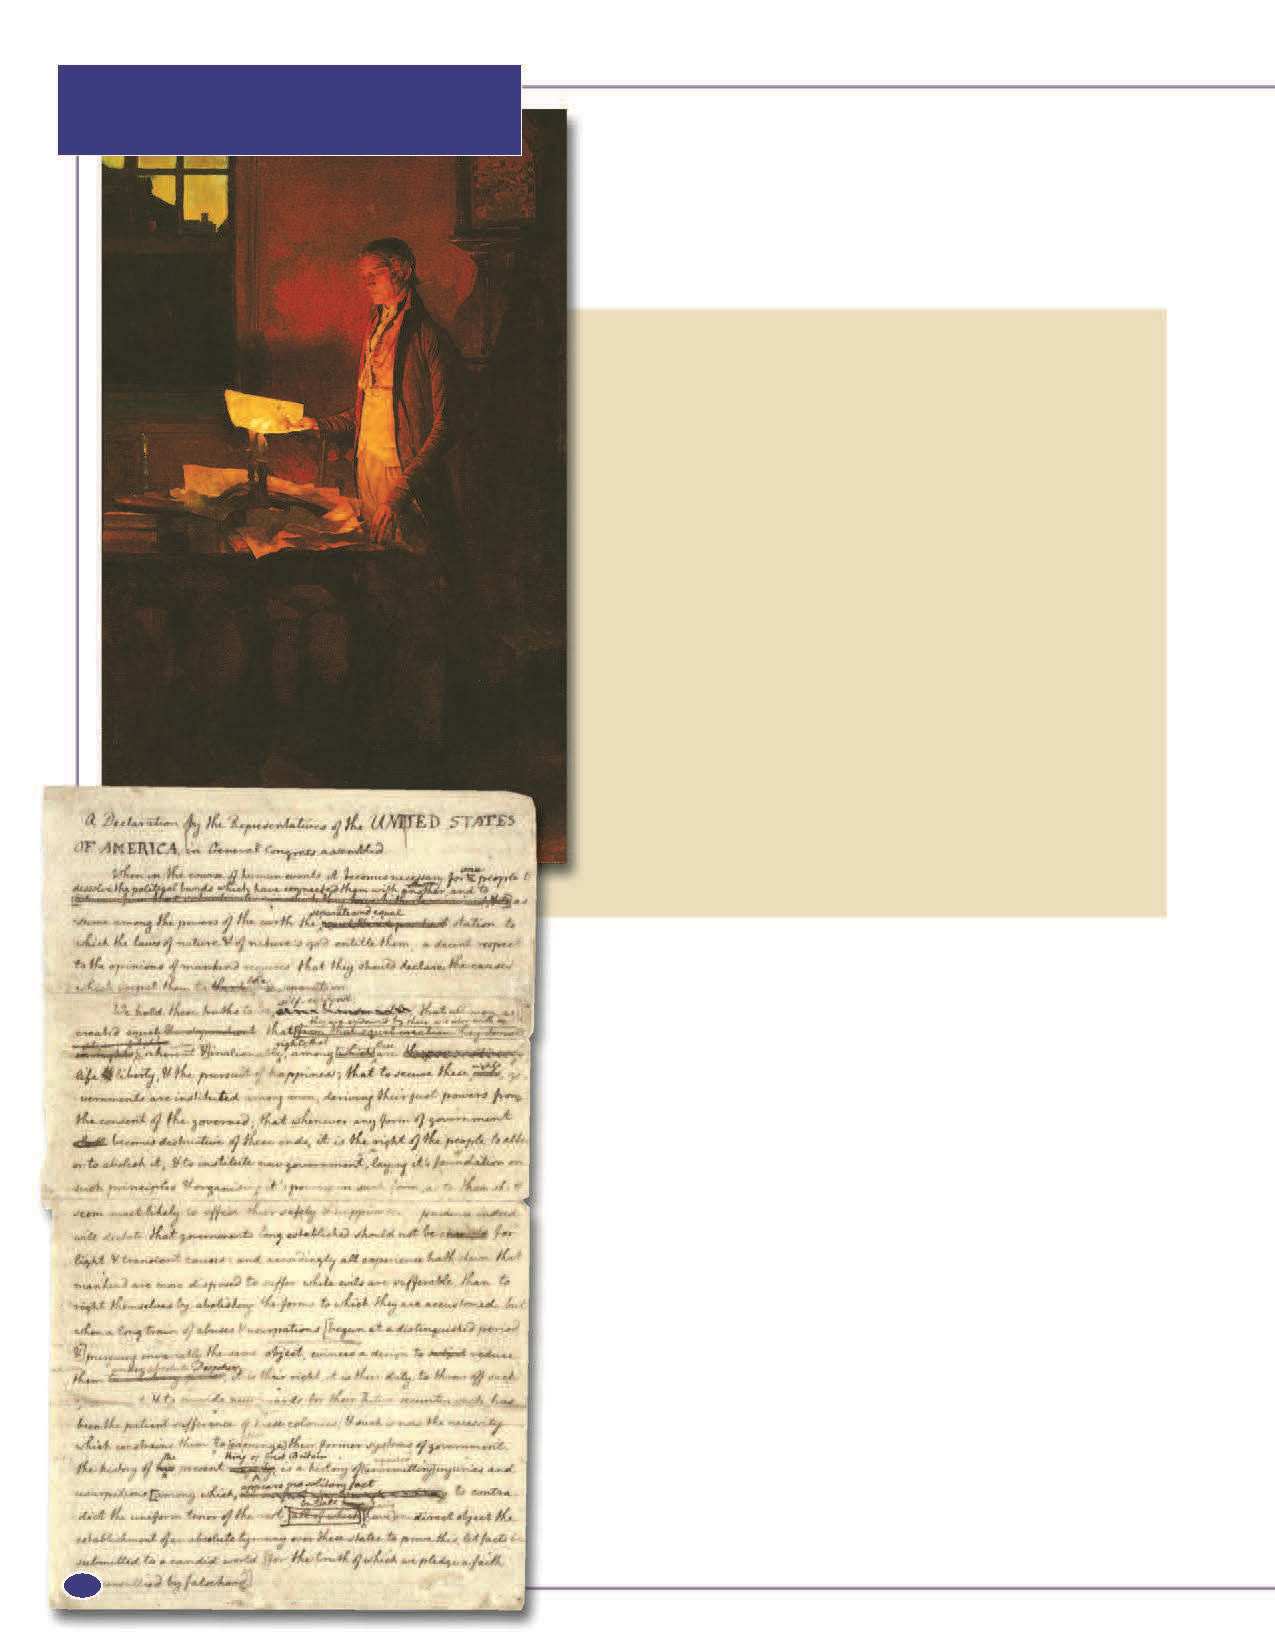 A Declaration by the Representatives of the UNITED STATES
OF AMERICA, in General Congress assembled
When in the course of human events it becomes necessary for one people to
dissolve the political bands which have connected them with another and to
as
separate and equal
-sume among the powers of the earth the station to
which the laws of nature & of nature's god entitle them, a decent respect
to the opinions of mankind requires that they should declare the causes
which impel them to the separation
self-evident
We hold these truths to be that all men are
they are endowed by their creator with
created equal & independent that from that equal creation they derive
rights that these
inherent & inalienable, among which are
life & liberty, & the pursuit of happiness; that to secure these rights, go
vernments are instituted among men, deriving their just powers from
the consent of the governed; that whenever any form of government
becomes destructive of these ends, it is the right of the people to alter
or to abolish it, & to institute new government, laying it's foundation on
such principles & organising it's powers in such form, as to them shall
seem most likely to effect their safety & happiness. prudence indeed
will dictate that governments long established should not be changed for
light & transient causes: and accordingly all experience hath shewn that
mankind are more disposed to suffer while evils are sufferable, than to
right themselves by abolishing the forms to which they are accustomed. but
when a long train of abuses & usurpations [begun at a distinguished period
&] pursuing invariably the same object, evinces a design to reduce
under absolute Despotism
them it is their right, it is their duty, to throw off such
& to provide new guards for their future security. such has
been the patient sufferance of these colonies; & such is now the necessity
which constrains them to [expunge] their former systems of government.
the King of Great Britain
the history of his present is a history of [unremitting] injuries and
appears no solitary fact
usurpations [among which, to contra
in
dict the uniform tenor of the rest [all of which] [have] in direct object the
establishment of an absolute tyranny over these states. to prove this, let facts be
submitted to a candid world [for the truth of which we pledge a faith
unsullied by falsehood]